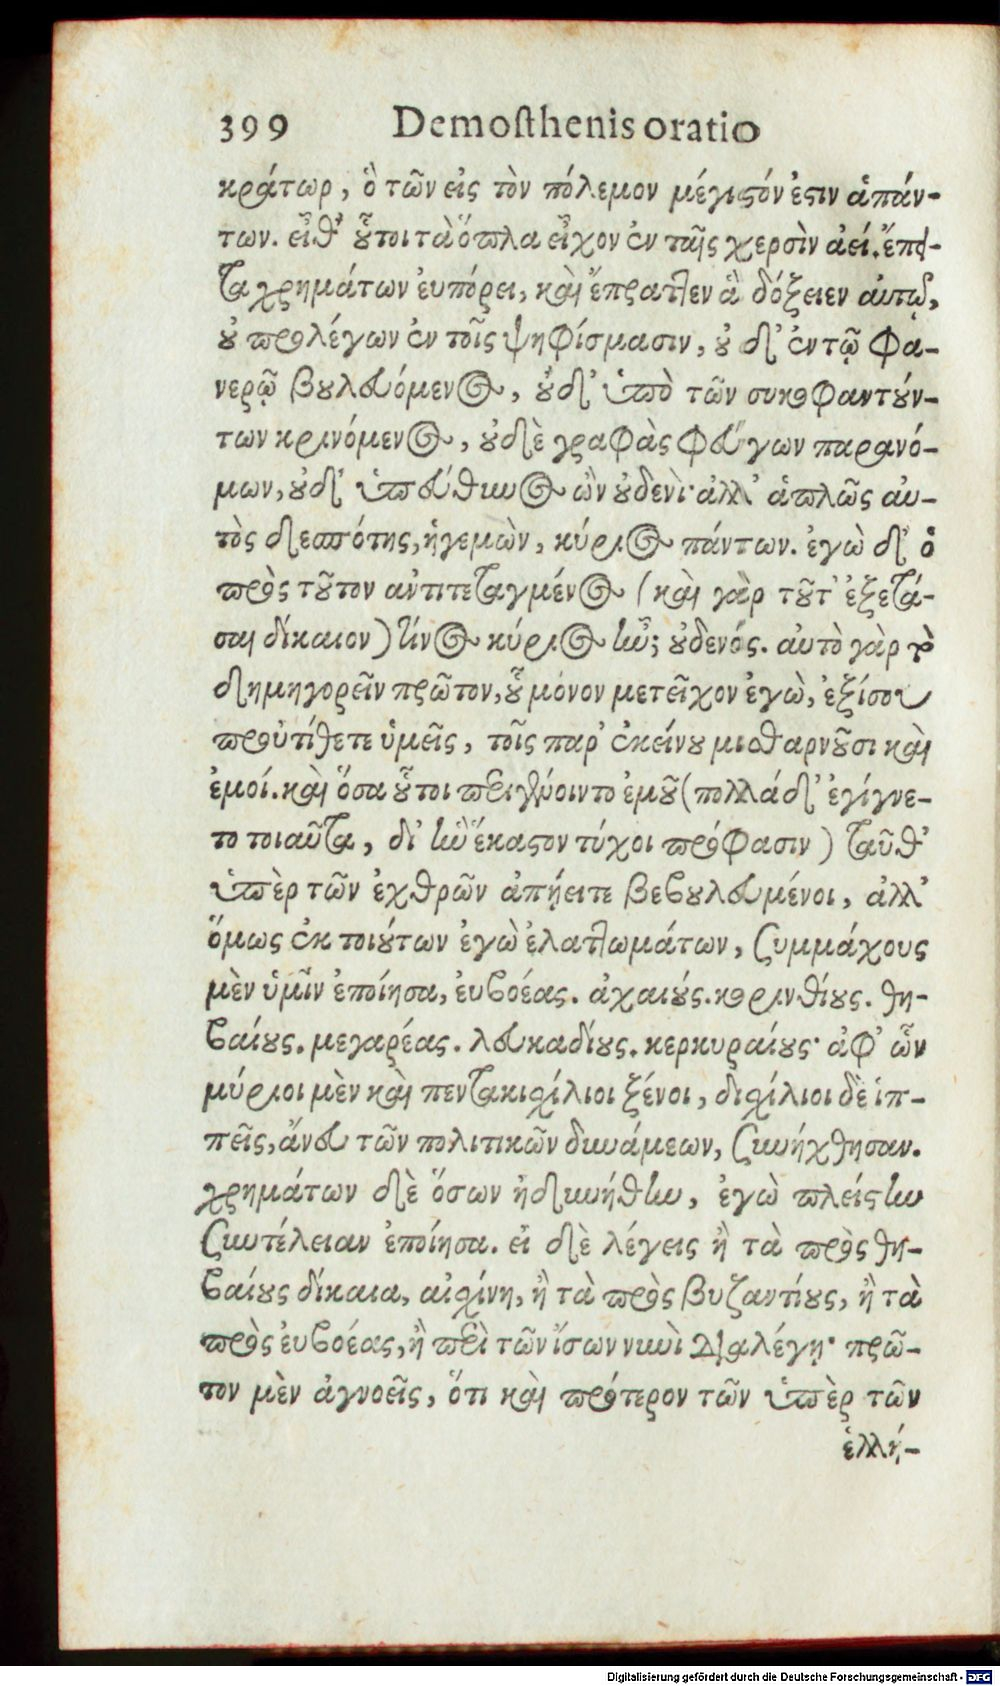 399 Demosthenis oratio
κράτωρ, ὃ τῶν εἰς τὸν πόλεμον μέγιϛόν ἐϛιν ἁπάν-
των. εἶθ' οὗτοι τὰ ὅπλα εἶχον ἐν ταῖς χερσὶν ἀεί. ἔπει-
τα χρημάτων ἐυπόρει, καὶ ἔπραττεν ἃ δόξειεν αὐτῷ,
οὐ προλέγων ἐν τοῖς ψηφίσμασιν, οὐ δ' ἐν τῷ φα-
νερῷ βουλευόμενος, οὐδ' ὑπὸ τῶν συκοφαντούν-
των κρινόμενος, οὐδὲ γραφὰς φεύγων παρανό-
μων, οὐδ' ὑπεύθυνος ὢν οὐδενὶ· ἀλλ' ἁπλῶς αὐ-
τὸς δεσπότης, ἡγεμὼν, κύριος πάντων. ἐγὼ δ' ὁ
πρὸς τοῦτον ἀντιτεταγμένος (καὶ γὰρ τοῦτ' ἐξετά-
σαι δίκαιον) τίνος κύριος ἦν; οὐδενός. αὐτὸ γὰρ τὸ
δημηγορεῖν πρῶτον, οὗ μόνον μετεῖχον ἐγὼ, ἐξίσου
προὐτίθετε ὑμεῖς, τοῖς παρ' ἐκείνου μισθαρνοῦσι καὶ
ἐμοί. καὶ ὅσα οὗτοι περιγένοιντο ἐμοῦ (πολλὰ δ' ἐγίγνε-
το τοιαῦτα, δι' ἣν ἕκαϛον τύχοι πρόφασιν) ταῦθ'
ὑπὲρ τῶν ἐχθρῶν ἀπῄειτε βεβουλευμένοι, ἀλλ'
ὅμως ἐκ τοιούτων ἐγὼ ἐλαττωμάτων, συμμάχους
μὲν ὑμῖν ἐποίησα, ἐυβοέας. ἀχαιούς. κορινθίους. θη-
βαίους. μεγαρέας. λευκαδίους. κερκυραίους· ἀφ' ὧν
μύριοι μὲν καὶ πεντακιχίλιοι ξένοι, διχίλιοι δὲ ἱπ-
πεῖς, ἄνευ τῶν πολιτικῶν δυνάμεων, συνήχθησαν.
χρημάτων δὲ ὅσων ἠδυνήθην, ἐγὼ πλείϛην
συντέλειαν ἐποίησα. εἰ δὲ λέγεις ἢ τὰ πρὸς θη-
βαίους δίκαια, αἰχίνη, ἢ τὰ πρὸς βυζαντίους, ἢ τὰ
πρὸς ἐυβοέας, ἢ περὶ τῶν ἴσων νυνὶ διαλέγῃ· πρῶ-
τον μὲν ἀγνοεῖς, ὅτι καὶ πρότερον τῶν ὑπὲρ τῶν
ἑλλή-
Digitalisierung gefördert durch die Deutsche Forschungsgemeinschaft - DFG